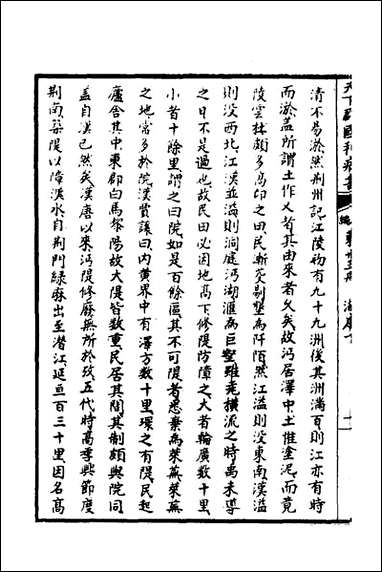 天下郡國利病書
編
湖廣下
清不易淤然荆州記江陵物有九十九洲後其洲滿百則江亦有時
而淤蓋所謂土作乂者其由來者久矣故沔居澤中土惟塗泥而竟
陵雲杜頗多高印之田民漸芟剔墾為阡陌然江溢則没東南漢溢
則没西北江漢並溢則洞庭沔湖滙為巨壑雖堯橫流之時禹未導
之日不是過也故民田必因地高下修隄防障之大者輪廣數十里
小者十餘里謂之曰院如是百餘區其不可隄者悉棄為萊蕪萊蕪
之地常多於院漢賈讓曰内黄界中有澤方數十里環之有隄民起
廬舍其中東郡白馬黎陽故大隄皆數重民居其間其制頗與院同
蓋自漢已然矣漢唐以來沔隄修廢無所於攷五代時高季興節度
荆南築隄以障漢水自荆門緑麻出至潜江延亘一百三十里因名高